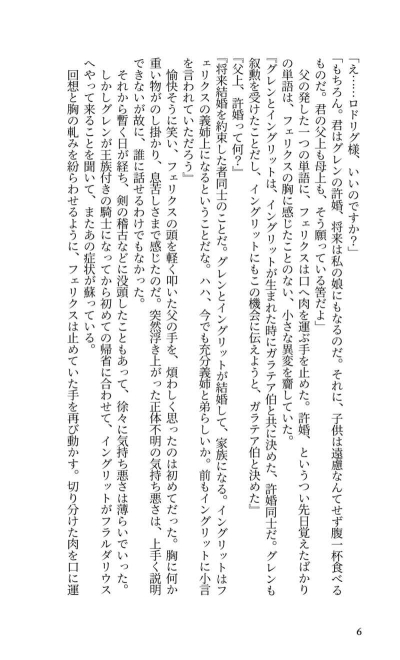 「え……ロドリグ様、いいのですか?」
「もちろん。君はグレンの許婚、将来は私の娘にもなるのだ。それに、子供は遠慮なんてせず腹一杯食べる
ものだ。君の父上も母上も、そう願っている筈だよ」
父の発した一つの単語に、フェリクスは口へ肉を運ぶ手を止めた。許婚、というつい先日覚えたばかり
の単語は、フェリクスの胸に感じたことのない、小さな異変を齎していた。
『グレンとイングリットは、イングリットが生まれた時にガラテア伯と共に決めた、許婚同士だ。グレンも
叙勲を受けたことだし、イングリットにもこの機会に伝えようと、ガラテア伯と決めた』
『父上、許婚って何?』
『将来結婚を約束した者同士のことだ。グレンとイングリットが結婚して、家族になる。イングリットはフ
ェリクスの義姉上になるということだな。ハハ、今でも充分義姉と弟らしいか。前もイングリットに小言
を言われていただろう』
愉快そうに笑い、フェリクスの頭を軽く叩いた父の手を、煩わしく思ったのは初めてだった。胸に何か
重い物がのし掛かり、息苦しさまで感じたのだ。突然浮き上がった正体不明の気持ち悪さは、上手く説明
できないが故に、誰に話せるわけでもなかった。
それから暫く日が経ち、剣の稽古などに没頭したこともあって、徐々に気持ち悪さは薄らいでいった。
しかしグレンが王族付きの騎士になってから初めての帰省に合わせて、イングリットがフラルダリウス
へやって来ることを聞いて、またあの症状が蘇っている。
回想と胸の軋みを紛らわせるように、フェリクスは止めていた手を再び動かす。切り分けた肉を口に運
6